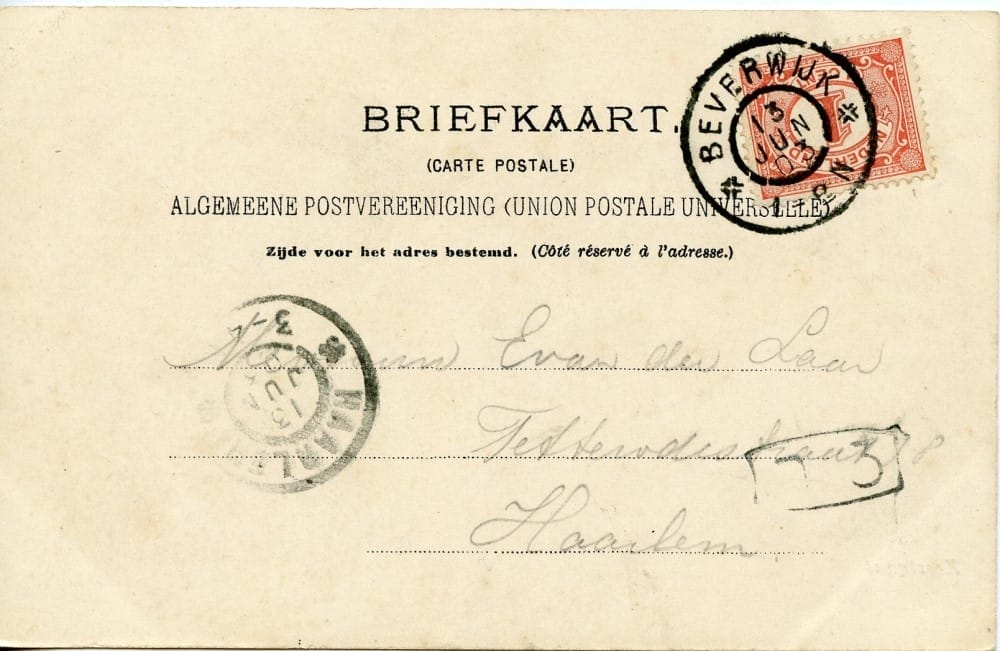 BRIEFKAART.
(CARTE POSTALE)
ALGEMEENE POSTVEREENIGING (UNION POSTALE UNIVERSELLE).
Zijde voor het adres bestemd. (Côté réservé à l'adresse.)
BEVERWIJK
13
JUN
03
1-2N
HAARLEM
13
JUN
E van der Laar
Haarlem
3